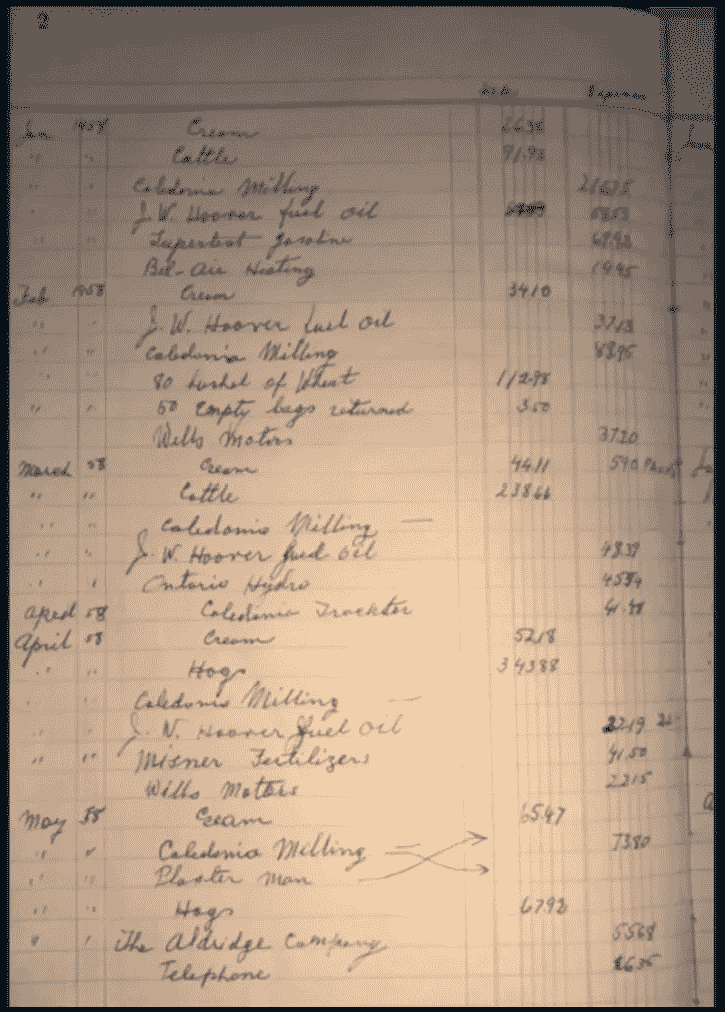 2
Expenses
Jan 1958 Cream
" " Cattle 91.92
" " Caledonia Milling 216.75
" J.W. Hoover fuel oil
" " Supertest gasoline
Bel-Air Heating 19.45
Feb 1958 Cream 34.10
" " J.W. Hoover fuel oil 37.13
" " Caledonia Milling 88.95
" " 80 bushel of Wheat 112.98
" " 50 Empty bags returned 3.50
Wells Motors 37.20
March 58 Cream 44.11 5.90
" " Cattle 238.66
" " Caledonia Milling —
" " J.W. Hoover fuel oil 48.39
" " Ontario Hydro
April 58 Caledonia Tracktor
April 58 Cream 52.18
" " Hogs 343.88
" " Caledonia Milling —
" " J.W. Hoover fuel oil 22.19
" " Misner Fertilizers 41.50
Wells Motors 22.15
May 58 Cream 65.47
" " Caledonia Milling = 73.80
" " Plaster man
" " Hogs 67.92
" " The Aldridge Company 55.68
Telephone